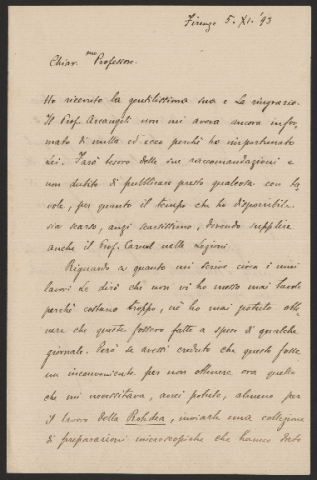 Firenze 5. XI. '93
Chiar.mo Professore.
Ho ricevuto la gentilissima sua e La ringrazio.
Il Prof. Arcangeli non mi aveva ancora infor,
mato di nulla ed ecco perchè ho importunato
Lei. Farò tesoro delle sue raccomandazioni e
non dubito di pubblicare presto qualcosa con ta,
vole, per quanto il tempo che ho disponibile
sia scarso, anzi scarsissimo, dovendo supplire
anche il Prof. Caruel nelle Lezioni.
Riguardo a quanto mi scrive circa i miei
lavori Le dirò che non vi ho messo mai tavole
perchè costano troppo, nè ho mai potuto otte,
nere che queste fossero fatte a spese di qualche
giornale. Però se avessi creduto che questo fosse
un inconveniente per non ottenere ora quello
che mi necessitava, avrei potuto, almeno per
il lavoro della Rohdea, inviarle una collezione
di preparazioni microscopiche che hanno dato